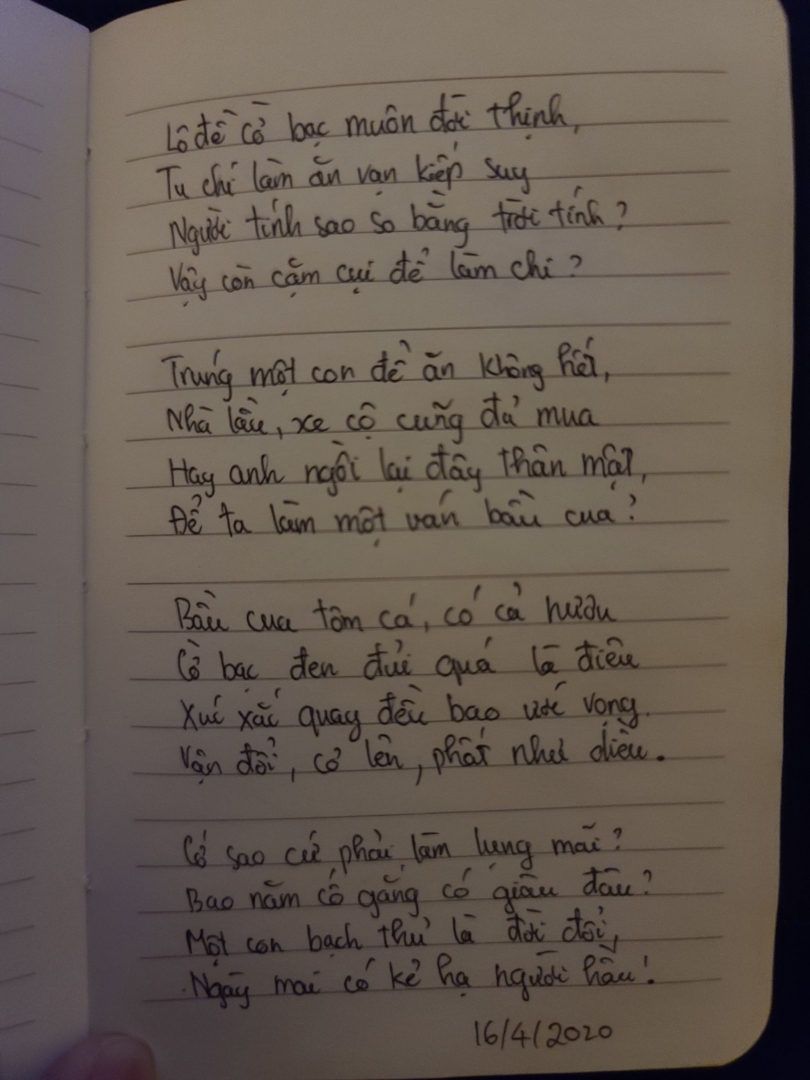 Lô đề cờ bạc muôn đời thịnh,
Tu chí làm ăn vạn kiếp suy
Người tính sao so bằng trời tính?
Vậy còn cặm cụi để làm chi?
Trúng một con đề ăn không hết,
Nhà lầu, xe cộ cũng đủ mua
Hay anh ngồi lại đây thân mật,
Để ta làm một ván bầu cua?
Bầu cua tôm cá, có cả hươu
Cờ bạc đen đủi quá là điêu
Xúc xắc quay đều bao ước vọng
Vận đổi, cơ lên, phất như diều.
Cớ sao cứ phải làm lụng mãi?
Bao năm cố gắng có giàu đâu?
Một con bạch thủ là đời đổi,
Ngày mai có kẻ hạ người hầu!
16/4/2020